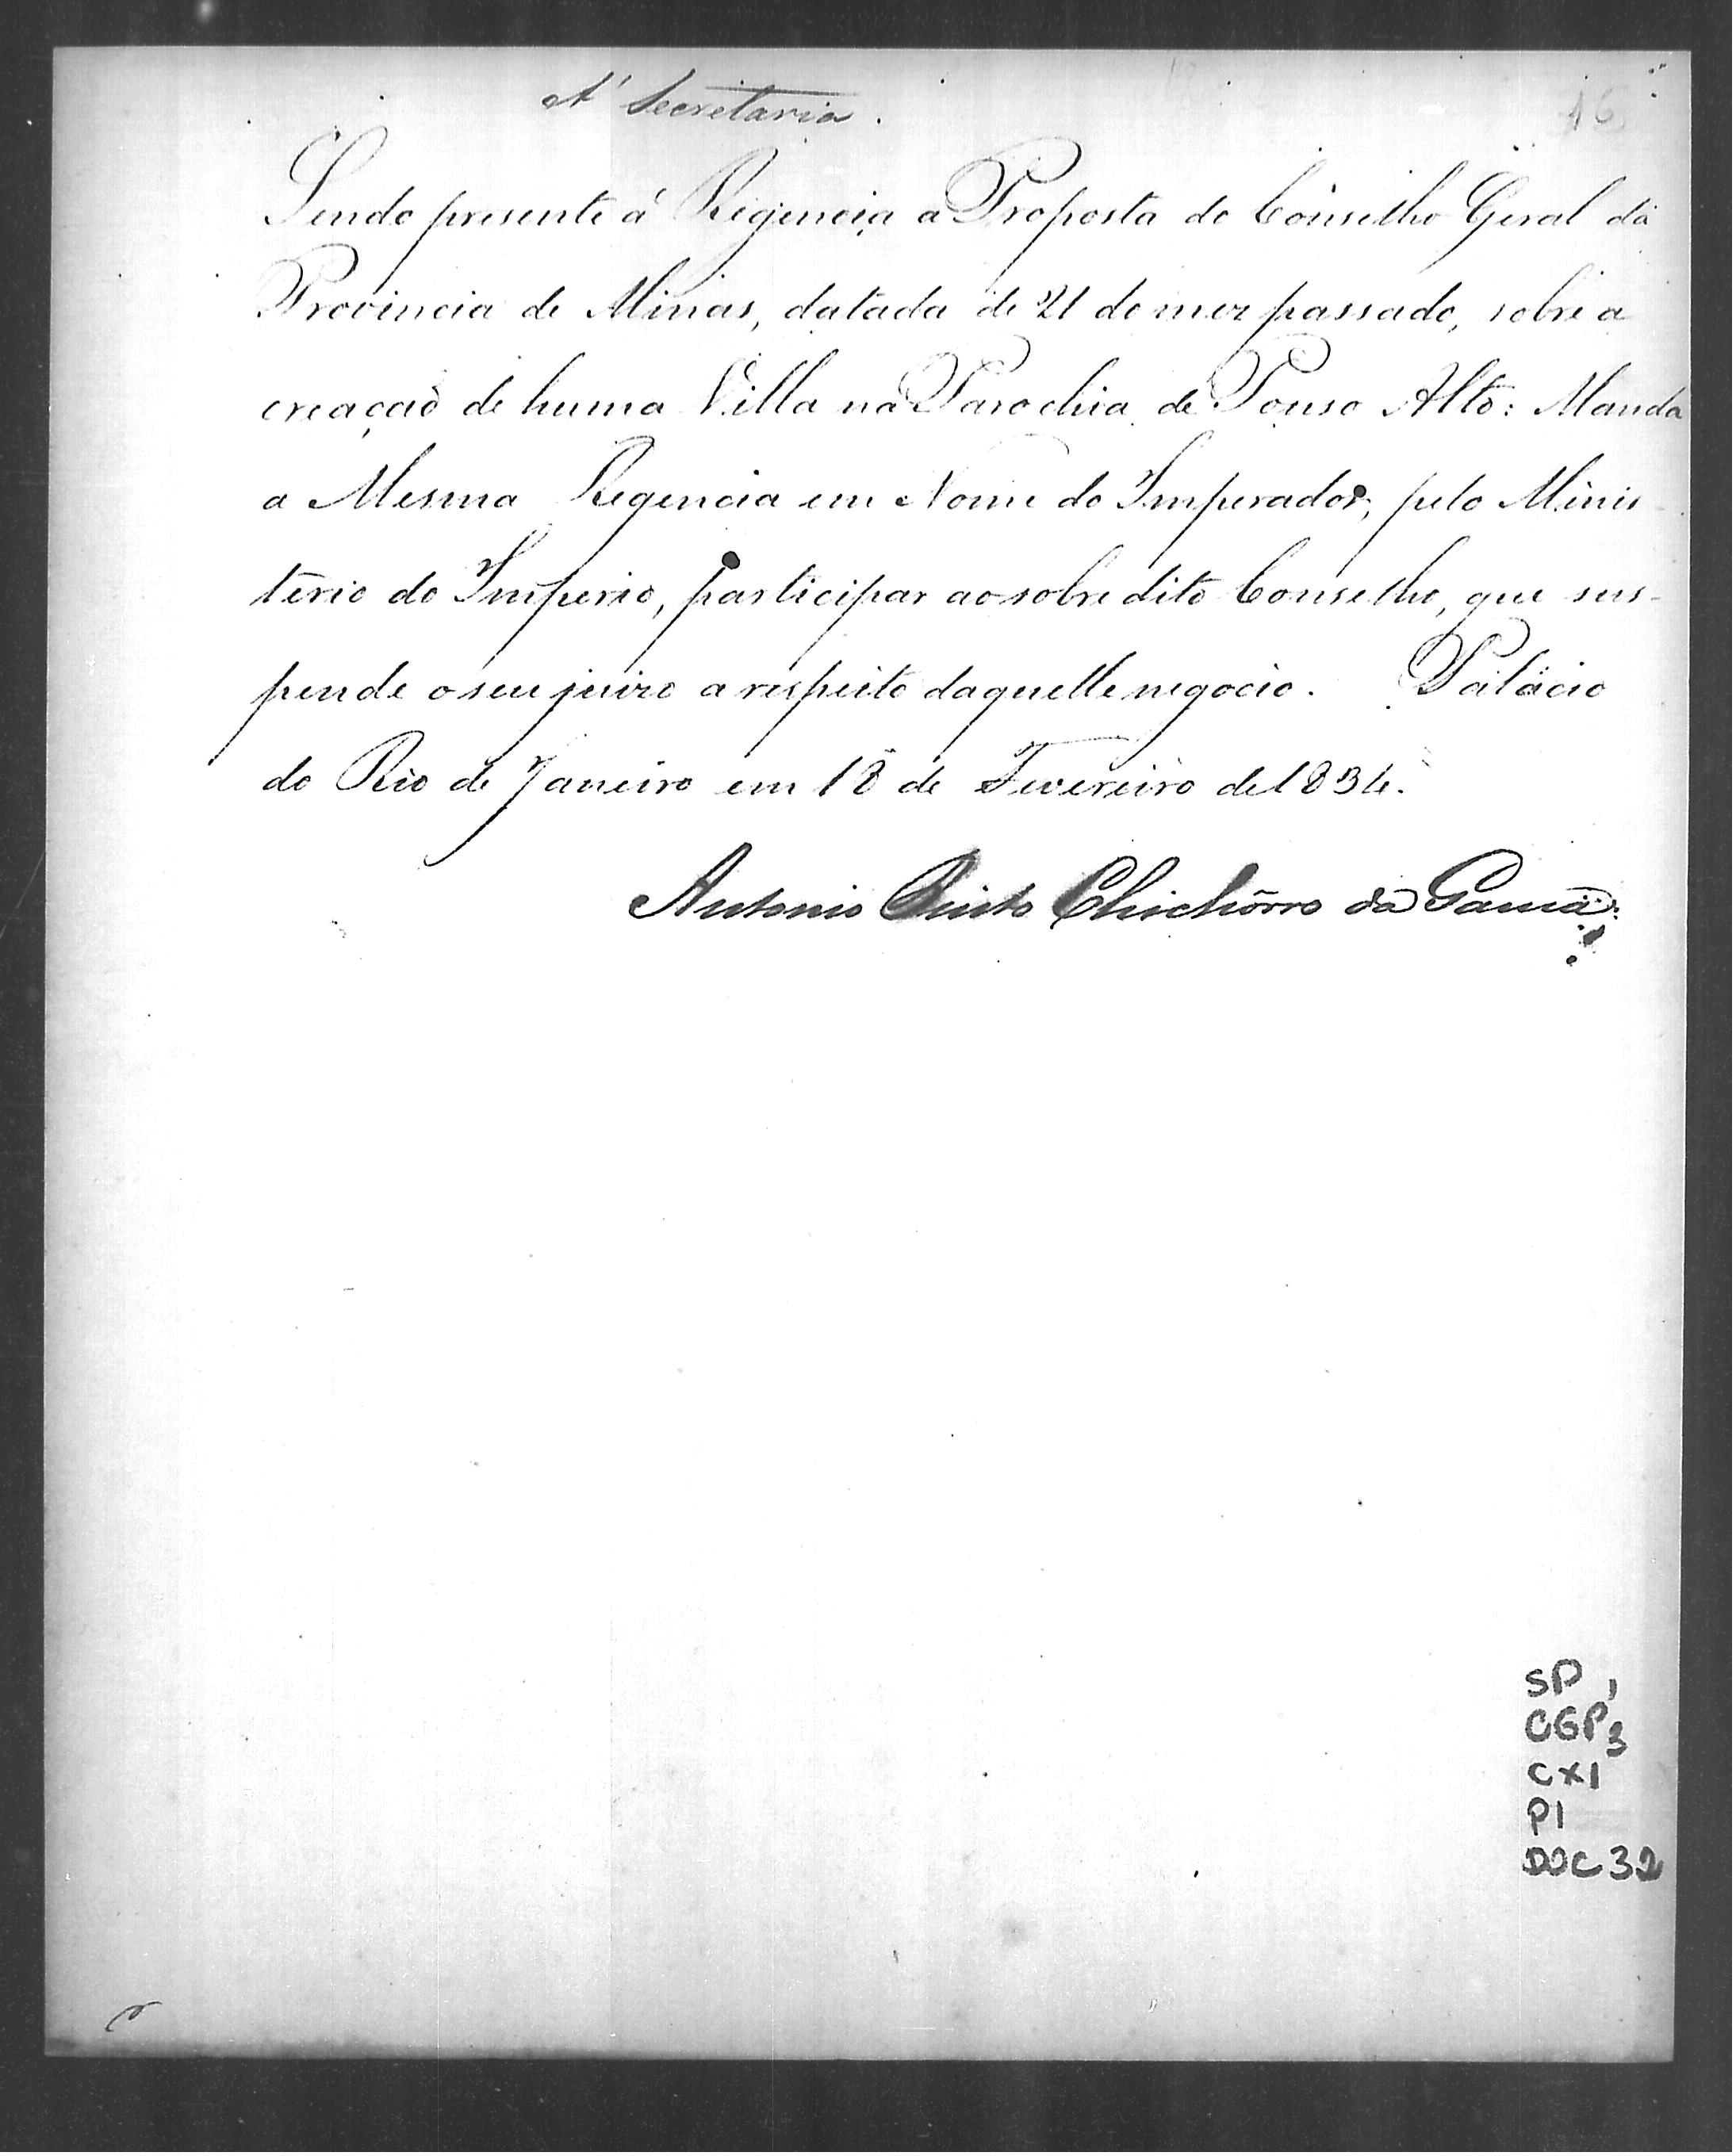 A' Secretaria.
16
Sendo presente á Regencia a Proposta do Conselho Geral da
Provincia de Minas, datada de 21 do mez passado, sobre a
creação de huma Villa na Parochia de Pouso Alto: Manda
a Mesma Regencia em Nome do Imperador, pelo Minis
terio do Imperio, participar ao sobredito Conselho, que sus-
pende o seu juizo a respeito daquelle negocio. Palacio
do Rio de Janeiro em 18 de Fevereiro de 1834.
Antonio Pinto Chichorro da Gama
SP 1
CGP 3
CX1
P1
DOC 32